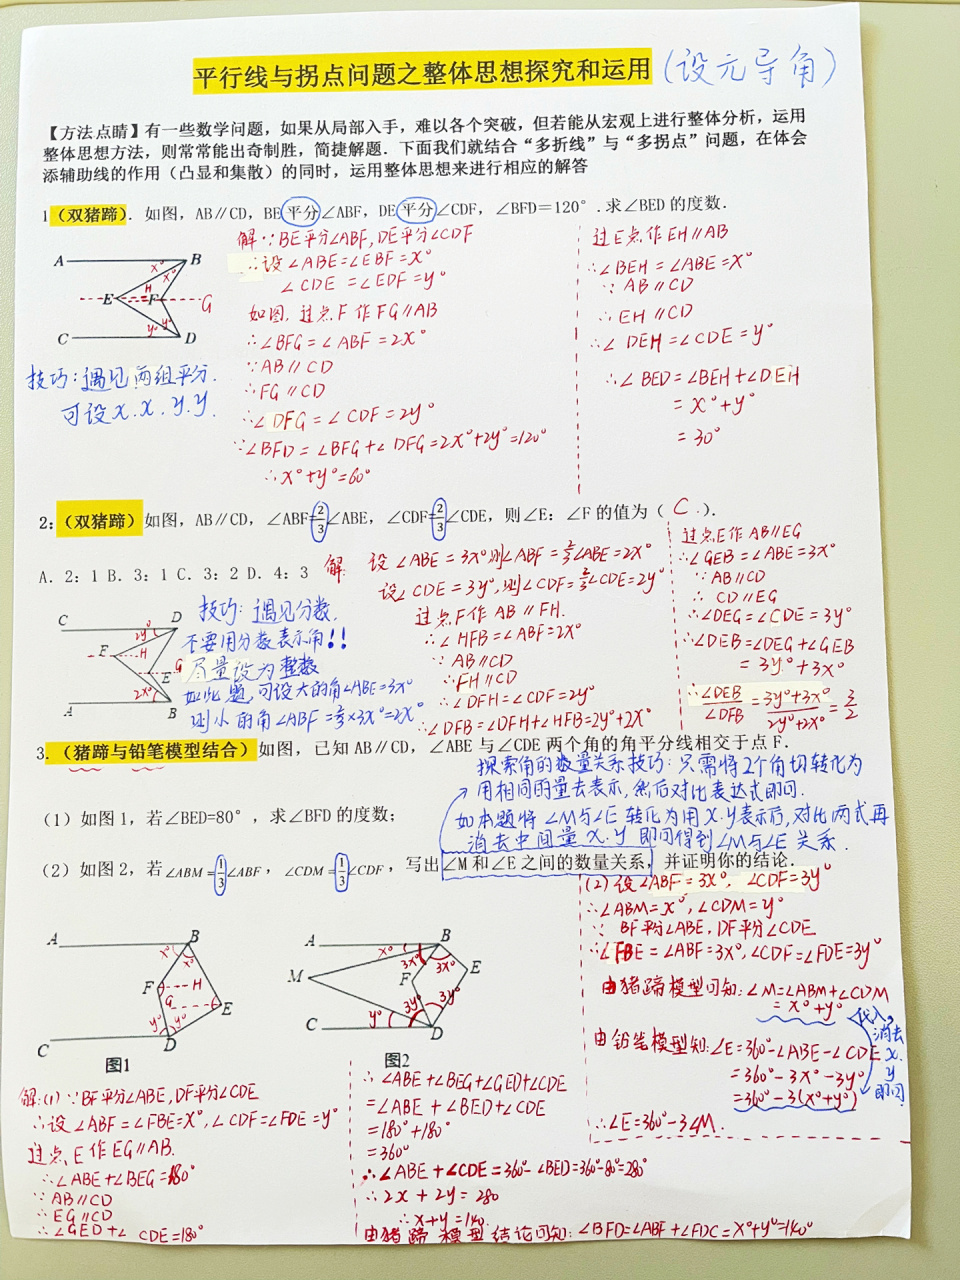 平行线与拐点问题之整体思想探究和运用(设元导角)
【方法点睛】有一些数学问题，如果从局部入手，难以各个突破，但若能从宏观上进行整体分析，运用
整体思想方法，则常常能出奇制胜，简捷解题．下面我们就结合“多折线”与“多拐点”问题，在体会
添辅助线的作用（凸显和集散）的同时，运用整体思想来进行相应的解答
1（双猪蹄）．如图，AB∥CD，BE平分∠ABF，DE平分∠CDF，∠BFD＝120°．求∠BED的度数．
解:∵BE平分∠ABF,DE平分∠CDF
∴设∠ABE=∠EBF=x°
∠CDE=∠EDF=y°
如图,过点F作FG∥AB
∴∠BFG=∠ABF=2x°
∵AB∥CD
∴FG∥CD
∴∠DFG=∠CDF=2y°
∵∠BFD=∠BFG+∠DFG=2x°+2y°=120°
∴x°+y°=60°
过E点作EH∥AB
∴∠BEH=∠ABE=x°
∵AB∥CD
∴EH∥CD
∴∠DEH=∠CDE=y°
∴∠BED=∠BEH+∠DEH
=x°+y°
=30°
A B
x° x°
E H F G
y° y°
C D
技巧:遇见两组平分.
可设x.x.y.y.
2:（双猪蹄）如图，AB∥CD，∠ABF=2/3∠ABE，∠CDF=2/3∠CDE，则∠E：∠F的值为（ C ）．
A．2：1 B．3：1 C．3：2 D．4：3
解: 设∠ABE=3x°则∠ABF=2/3∠ABE=2x°
设∠CDE=3y°,则∠CDF=2/3∠CDE=2y°
过点F作AB∥FH.
∴∠HFB=∠ABF=2x°
∵AB∥CD
∴FH∥CD
∴∠DFH=∠CDF=2y°
∴∠DFB=∠DFH+∠HFB=2y°+2x°
过点E作AB∥EG
∴∠GEB=∠ABE=3x°
∵AB∥CD
∴CD∥EG
∴∠DEG=∠CDE=3y°
∴∠DEB=∠DEG+∠GEB
=3y°+3x°
∴∠DEB/∠DFB=3y°+3x°/2y°+2x°=3/2
C D
2y°
F H
E G
2x°
A B
技巧:遇见分数,
不要用分数表示角!!
尽量设为整数
如此题,可设大的角∠ABE=3x°
则小的角∠ABF=2/3×3x°=2x°
3.（猪蹄与铅笔模型结合）如图，已知AB∥CD，∠ABE与∠CDE两个角的角平分线相交于点F．
探索角的数量关系技巧:只需将2个角切转化为
用相同的量去表示,然后对比表达式即可.
如本题将∠M与∠E转化为用x.y表示后,对比两式再
消去中间量x.y即可得到∠M与∠E关系.
（1）如图1，若∠BED=80°，求∠BFD的度数；
（2）如图2，若∠ABM=1/3∠ABF，∠CDM=1/3∠CDF，写出∠M和∠E之间的数量关系，并证明你的结论．
A B
x° x°
F H
G E
y° y°
C D
图1
A B
x° 3x° 3x°
M F E
y° 3y° 3y°
C D
图2
(2)设∠ABF=3x°,∠CDF=3y°
∴∠ABM=x°,∠CDM=y°
∵BF平分∠ABE,DF平分∠CDE
∴∠FBE=∠ABF=3x°,∠CDF=∠FDE=3y°
由猪蹄模型可知:∠M=∠ABM+∠CDM
=x°+y°
由铅笔模型知:∠E=360°-∠ABE-∠CDE
=360°-3x°-3y°
=360°-3(x°+y°)
∴∠E=360°-3∠M.
代入,
消去
x.
y
即可.
解:(1)∵BF平分∠ABE,DF平分∠CDE
∴设∠ABF=∠FBE=x°,∠CDF=∠FDE=y°
过点E作EG∥AB.
∴∠ABE+∠BEG=180°
∵AB∥CD
∴EG∥CD
∴∠GED+∠CDE=180°
∴∠ABE+∠BEG+∠GED+∠CDE
=∠ABE+∠BED+∠CDE
=180°+180°
=360°
∴∠ABE+∠CDE=360°-∠BED=360°-80°=280°
∴2x+2y=280
∴x+y=140.
由猪蹄模型结论可知:∠BFD=∠ABF+∠FDC=x°+y°=140°